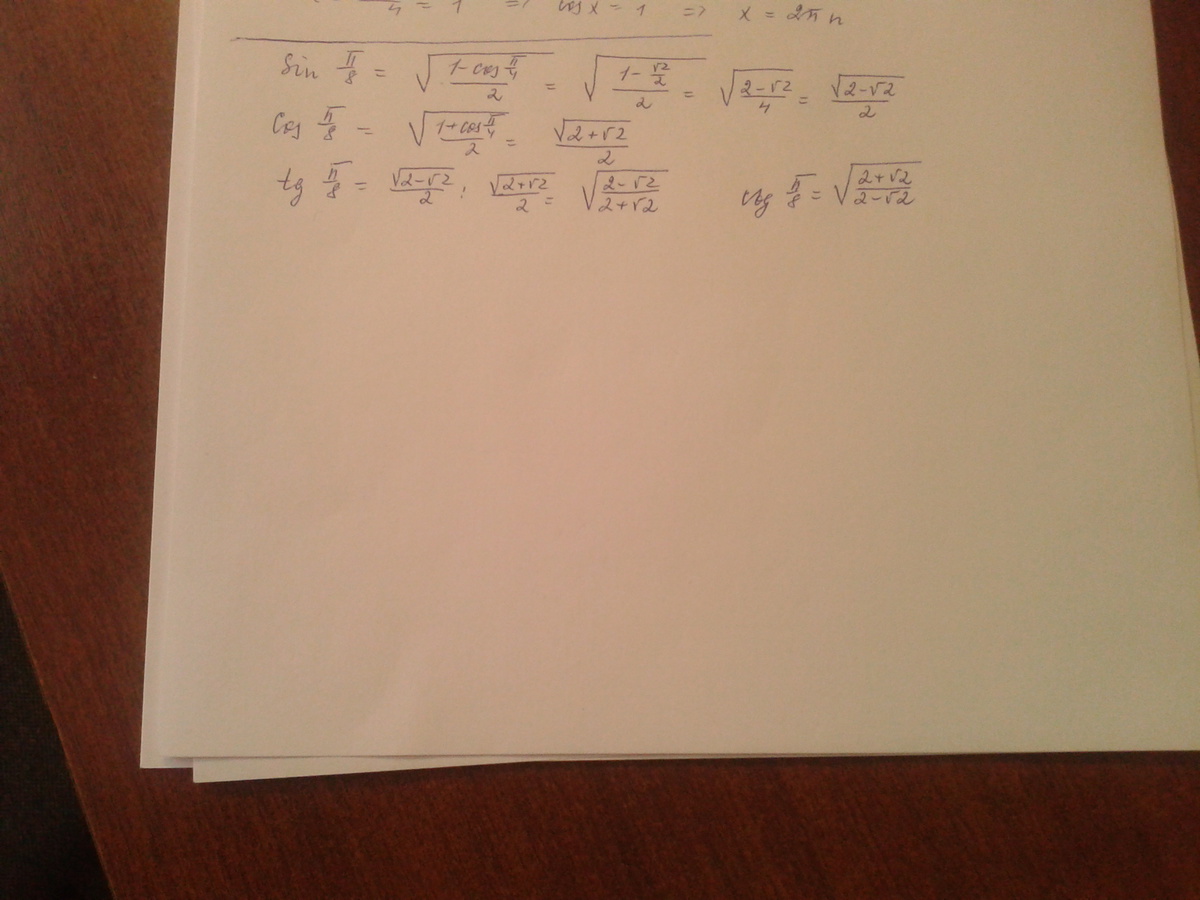 4 = 1 => cos x = 1 => x = 2πn
Sin π/8 = √((1-cos π/4)/2) = √((1-√2/2)/2) = √((2-√2)/4) = √(2-√2)/2
Cos π/8 = √((1+cos π/4)/2) = √(2+√2)/2
tg π/8 = √(2-√2)/2 : √(2+√2)/2 = √((2-√2)/(2+√2)) ctg π/8 = √((2+√2)/(2-√2))